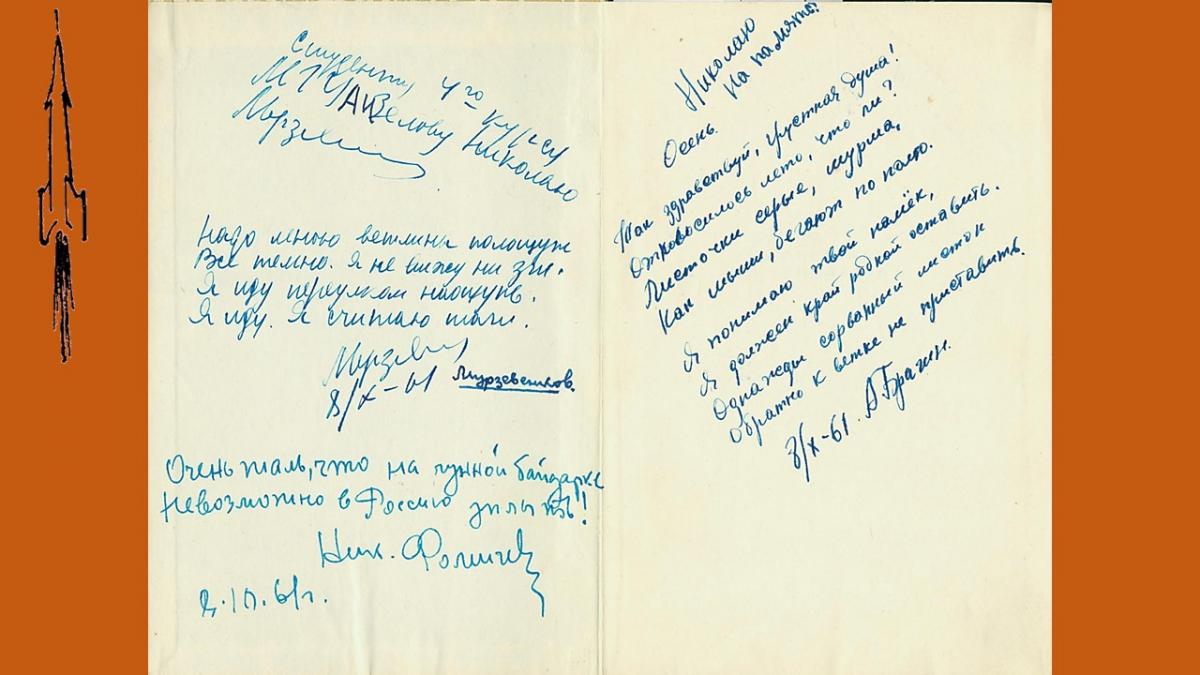 Студенту 4го курса
МГУ Акзелову Николаю
Мурзев
Надо мною ветлины полощут
Все темно. Я не вижу ни зги.
Я иду переулком наощупь.
Я иду. Я считаю шаги.
Мурзев
8/X-61 Мурзевешков.
Очень жаль, что на лунной байдарке
Невозможно в Россию уплыть!
Ник. Фомичев
8.10.61г.
Николаю
на память
Осень.
Так здравствуй, грустная душа!
Отковосилось лето, что ли?
Листочки серые, шурша,
Как мыши, бегают по полю.
Я понимаю твой намёк,
Я должен край родной оставить.
Однажды сорванный листок
Обратно к ветке не приставить.
8/X-61. А Брагин.